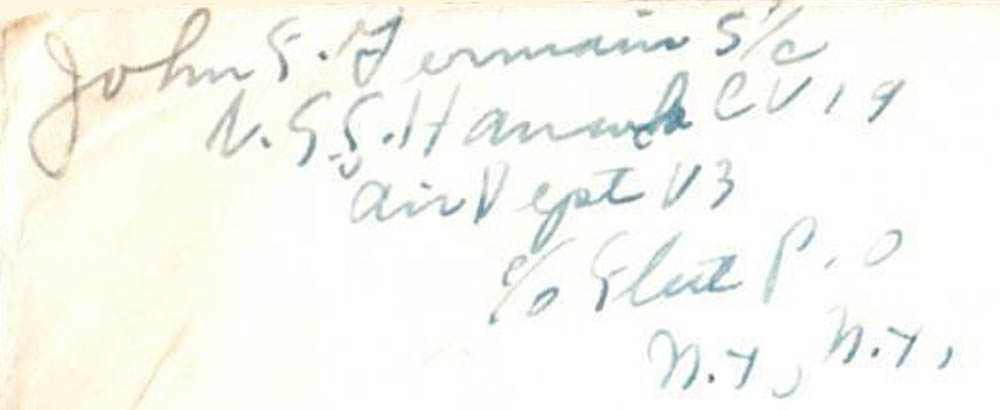 John F. Germain S/c
U.S.S. Hancock CV 19
Air Dept V3
c/o Fleet P.O
N.Y., N.Y.,